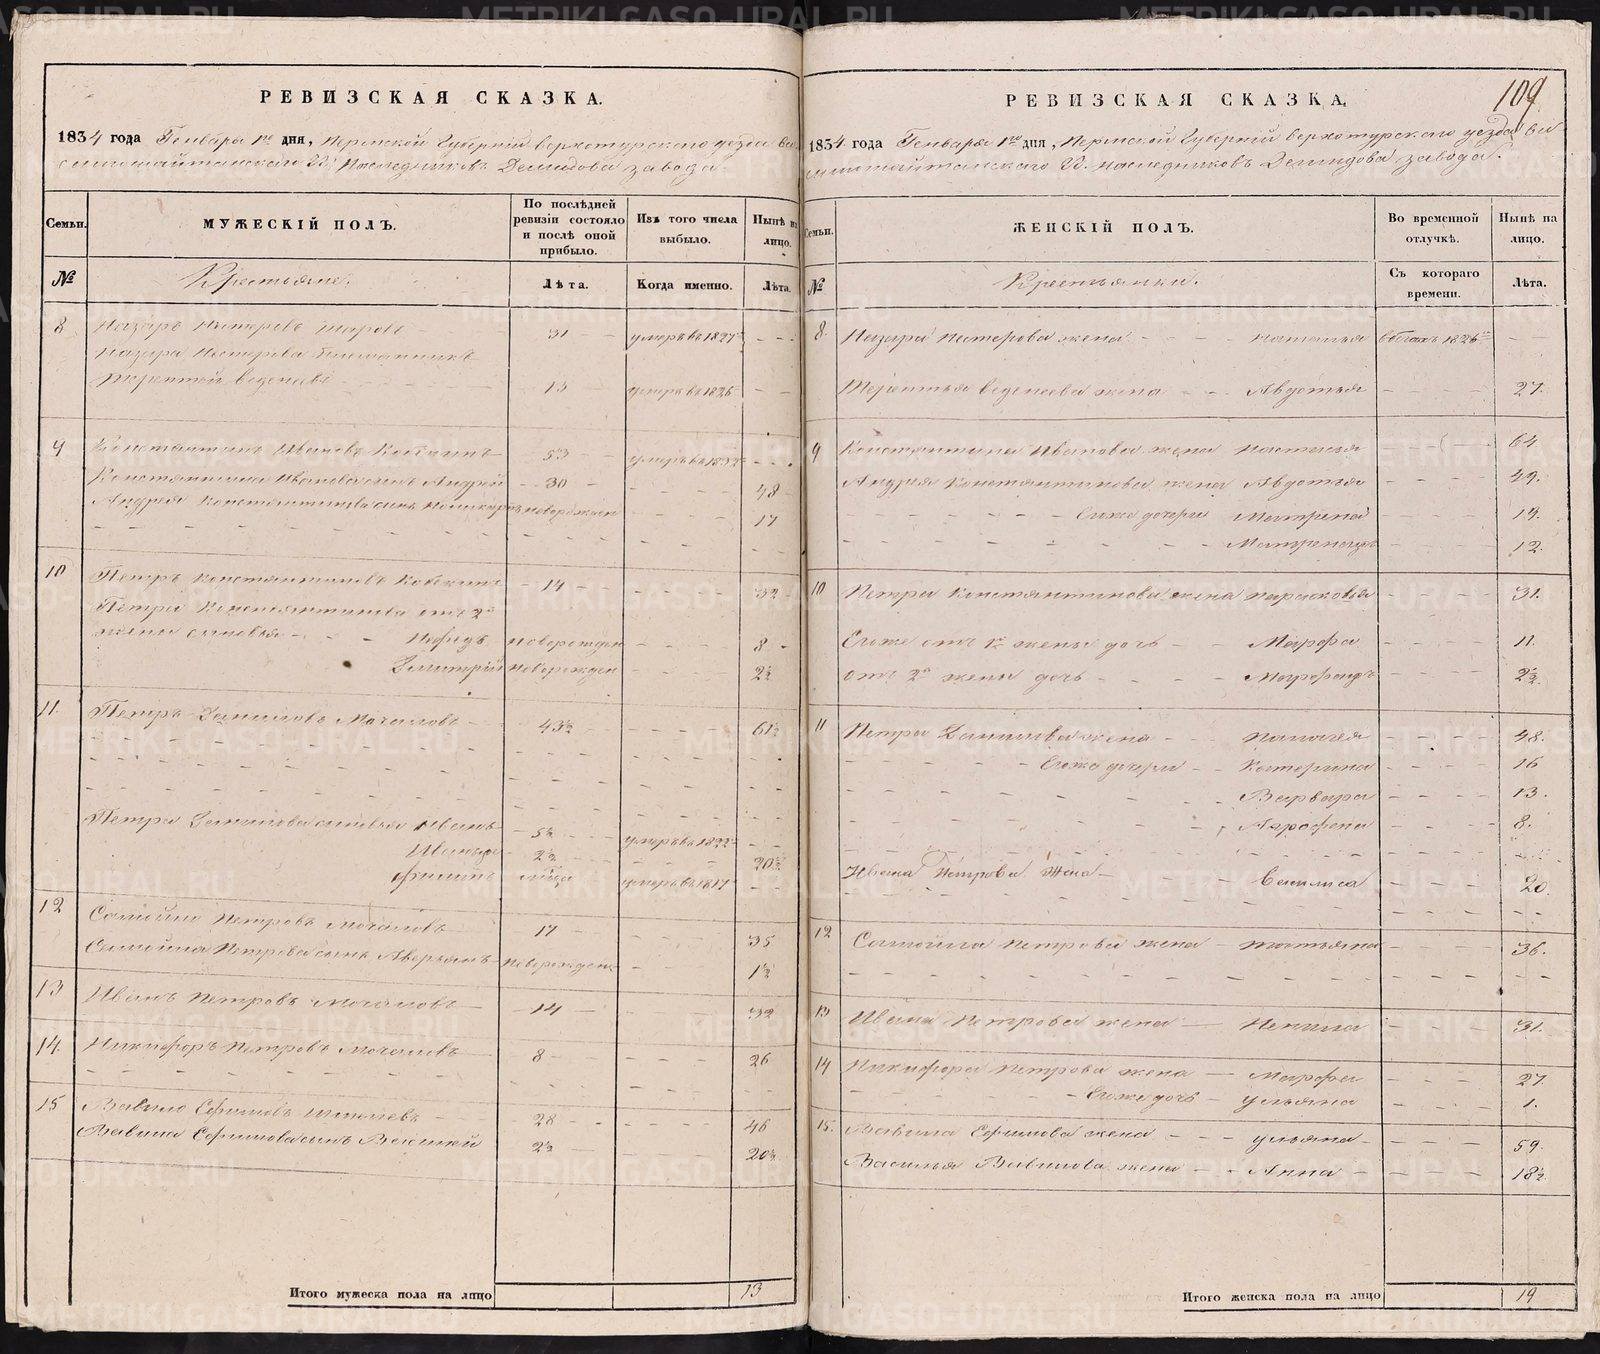 РЕВИЗСКАЯ СКАЗКА.
1834 года Генваря 1го дня, Пермской Губернии верхотурскаго уезда ви
симошайтанскаго Гг. Наследниковъ Демидова завода.
Семьи.
МУЖЕСКІЙ ПОЛЪ.
По послѣдней ревизіи состояло и послѣ оной прибыло.
Изъ того числа выбыло.
Нынѣ на лицо.
№ Крестьяне. Лѣта. Когда именно. Лѣта.
8 Назаръ Нестеровъ 31 умеръ въ 1827
Назара Нестерова племянникъ
Терентей веденеевъ 13 умеръ въ 1826
9 Константинъ Ивановъ 53 умеръ въ 1832
Константина Иванова сынъ Андрей 30 48
Андрея Константинова сынъ новорожден 17
10 Петръ Константиновъ 14 32
Петра Константинова отъ 2й
жены сыновья новорожден 8
Димитрій новорожден 2½
11. Петръ Даниловъ Мочаловъ 43½ 61½
Петра Данилова сыновья Иванъ 5½ умеръ въ 1822
2½ 20½
Филипъ умеръ въ 1817
12 Самойло Петровъ Мочаловъ 17 35
Самойла Петрова сынъ Аверьянъ новорожден 1½
13 Иванъ Петровъ Мочаловъ 14 32
14. Никифоръ Петровъ Мочаловъ 8 26
15 Вавило Ефимовъ 28 46
Вавила Ефимова сынъ Василей 2½ 20½
Итого мужеска пола на лицо 13
109
РЕВИЗСКАЯ СКАЗКА.
1834 года Генваря 1го дня, Пермской Губерніи верхотурскаго уезда ви
симошайтанскаго Гг. наследниковъ Демидова завода.
Семьи.
ЖЕНСКІЙ ПОЛЪ.
Во временной отлучкѣ.
Нынѣ на лицо.
№ Крестьянки. Съ котораго времени. Лѣта.
8. Назара Нестерова жена Наталья въ бегахъ 1826
Терентья веденеева жена Авдотья 27.
9 Константина Иванова жена Настасья 64.
Андрея Константинова жена Авдотья 49.
Егоже дочери Матрена 19.
12.
10 Петра Константинова жена Парасковья 31.
Егоже отъ 1й жены дочь Марфа 11.
отъ 2й жены дочь 2½.
11 Петра Данилова жена Палагея 48.
Егоже дочери Катерина 16
Варвара 13.
Аграфена 8.
Ивана Петрова жена Василиса 20.
12 Самойла Петрова жена Татьяна 36.
13 Ивана Петрова жена 31.
14 Никифора Петрова жена Марфа 27.
Егоже дочь Ульяна 1.
15. Вавила Ефимова жена Ульяна 59.
Василья Вавилова жена Анна 18½
Итого женска пола на лицо 19
METRIKI.GASO-URAL.RU